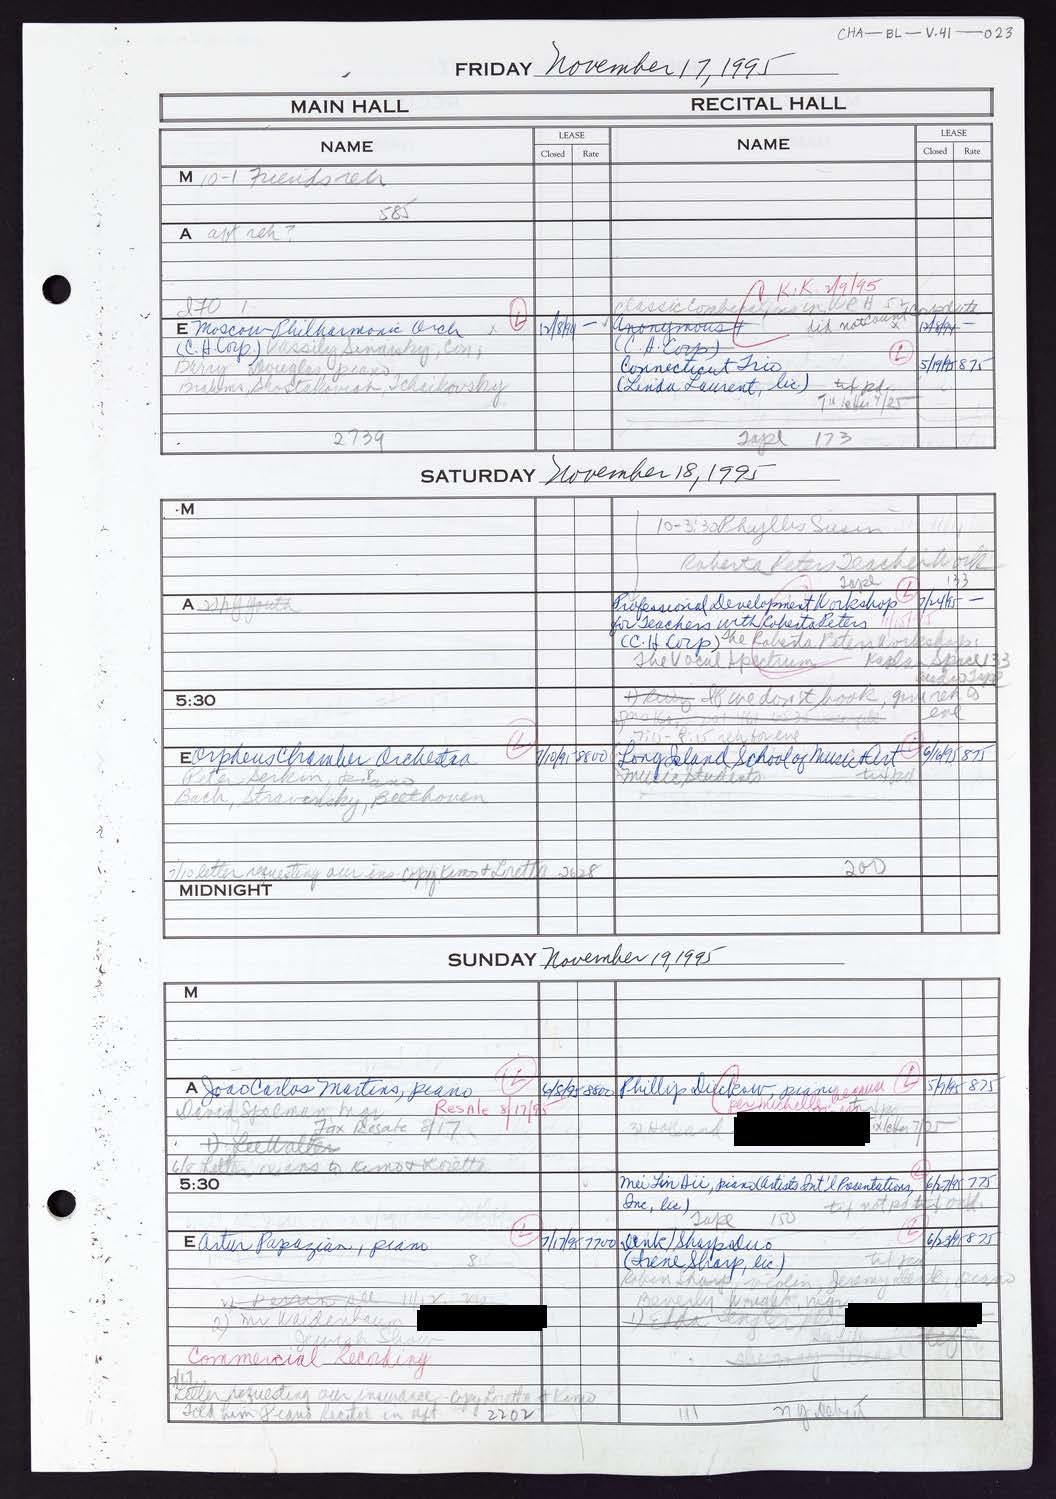 CHA-BL-V.41-023
FRIDAY November 17, 1995
MAIN HALL RECITAL HALL
NAME LEASE NAME LEASE
Closed Rate Closed Rate
M 10-1 Friends reh
585
A aft reh?
K.K. 2/9/95
E Moscow Philharmonic Orch x L 12/8/94 - Anonymous 4 did not count x 12/8/94 -
(C.H. Corp) Vassily Sinaisky, Con; (C.H. Corp)
Barry Douglas, piano Connecticut Trio L 5/19/95 875
Brahms, Shostakovich, Tchaikovsky (Linda Laurent, lic)
7/25
2739 Tape 173
SATURDAY November 18, 1995
M
10-3:30 Phyllis Susen
Roberta Peters Teacher Work
Tape 133
A Professional Development Workshop L 7/24/95 -
for Teachers with Roberta Peters
(C.H. Corp) The Roberta Peters Workshop:
The Vocal Spectrum Kaplan Space 133
audio Tape
5:30 If we don't book, give reh to
eve
7:15-8:15 reh for eve
E Orpheus Chamber Orchestra L 7/10/95 8800 Long Island School of Music Art L 6/6/95 875
Peter Serkin, piano 8 music students
Bach, Stravinsky, Beethoven
7/10 letter requesting our ins-copy Kimo + Loretta 2628 200
MIDNIGHT
SUNDAY November 19, 1995
M
A Joao Carlos Martins, piano L 6/8/95 8800 Phillip Dieckow, piano L 5/9/95 875
Resale 8/17/95 per Michelle
Fax Resale 8/17
1) Lee Walter 7/25
6/8 Letter re ins to Kimo + Loretta
5:30 Mei Lin Aii, piano (Artists Int'l Presentations, L 6/27/95 775
Inc, lic)
Tape 150
E Artur Papazian, piano L 7/17/95 7700 Denk/Sharp Duo L 6/23/95 875
8 (Irene Sharp, lic.)
Robin Sharp, violin, Jeremy Denk, piano
Beverly Wright, mgr
2) Mr
Commercial Recording
7/17
Letter requesting our insurance - copy Loretta + Kimo
Told him piano recital in aft 2202 111 NY Debut